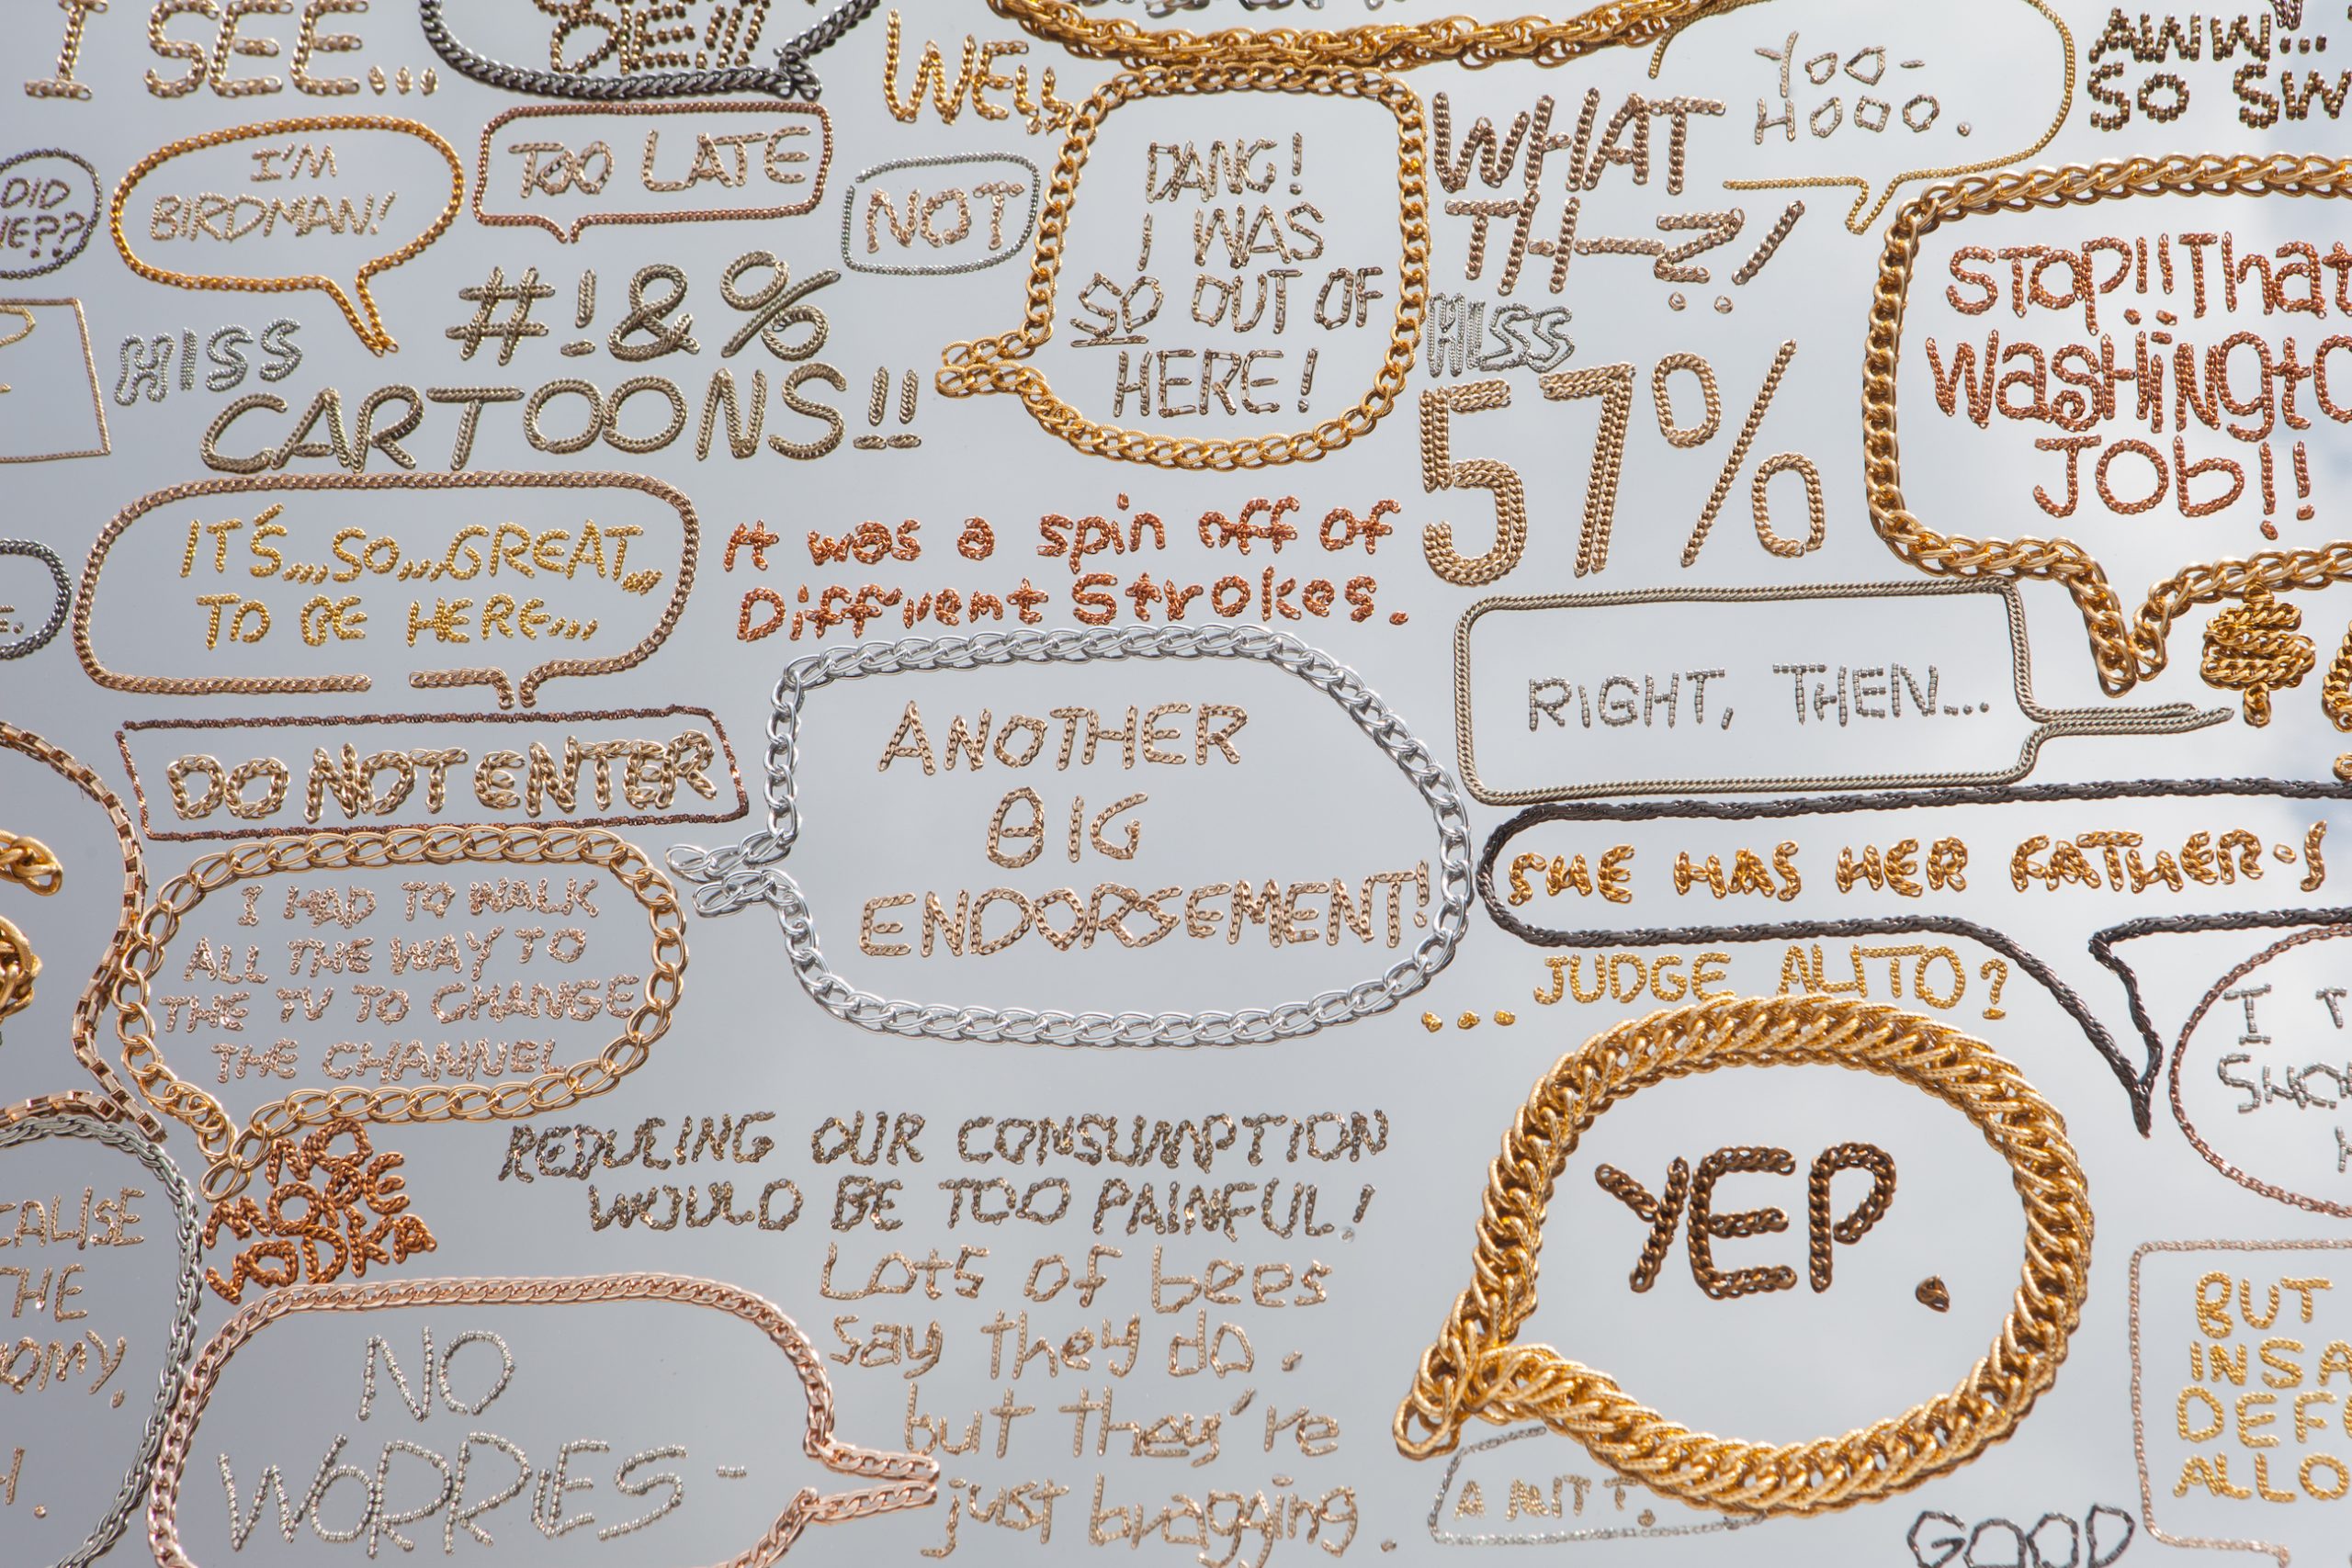 I SEE...
WELL,
YOO-
HOOO.
AWW...
SO SW
DID
HE??
I'M
BIRDMAN!
TOO LATE
NOT
DANG!
I WAS
SO OUT OF
HERE!
WHAT
TH—?!
STOP!! That
Washingto
Job!!
HISS
#!&%
CARTOONS!!
HISS
57%
IT'S,,,SO,,,GREAT,,,
TO BE HERE,,,
It was a spin off of
Diff'rent Strokes.
RIGHT, THEN...
$
DO NOT ENTER
ANOTHER
BIG
ENDORSEMENT!
SHE HAS HER FATHER'S
I HAD TO WALK
ALL THE WAY TO
THE TV TO CHANGE
THE CHANNEL
...JUDGE ALITO?
I T
SHO
NO
MORE
VODKA
REDUCING OUR CONSUMPTION
WOULD BE TOO PAINFUL!
YEP.
CAUSE
THE
NOMY,
Lots of bees
say they do,
but they're
just bragging.
NO
WORRIES-
BUT
INSA
DEF
ALLO
GOOD